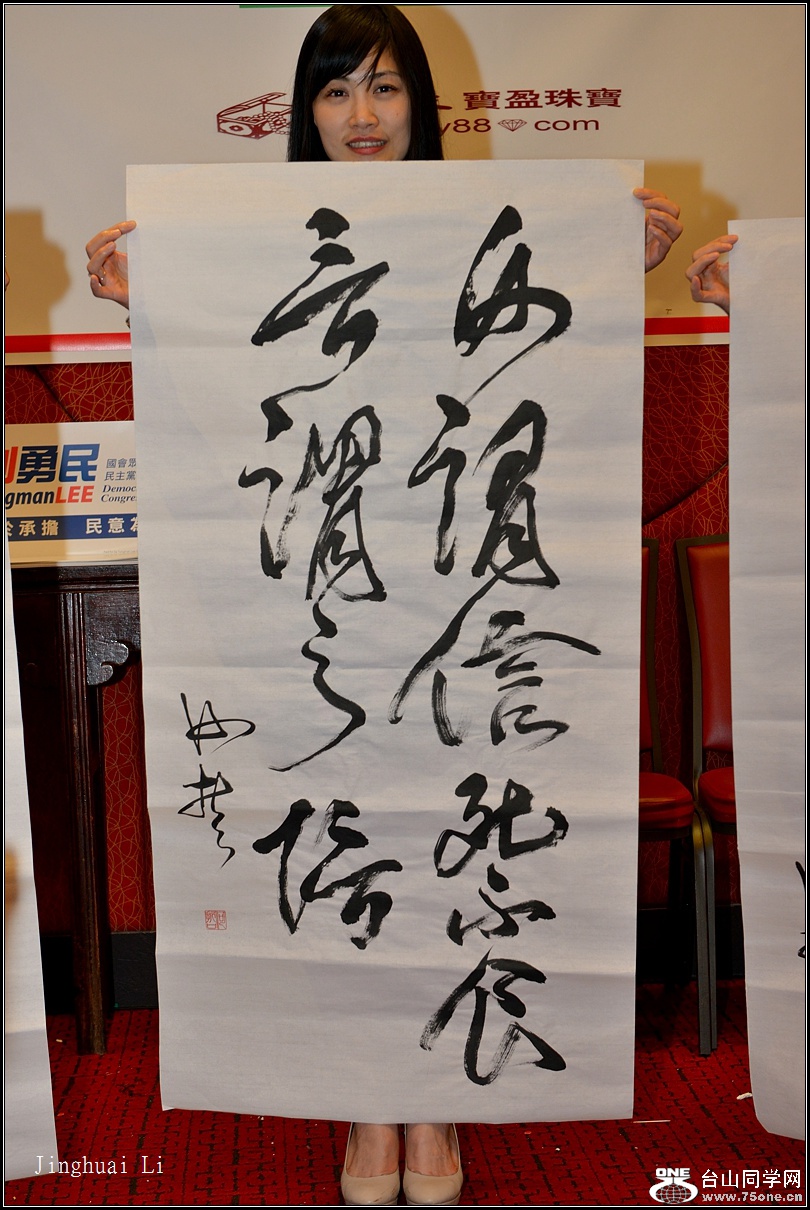 寶盈珠寶
y88 com
謂信死不食
言謂之
勇民
國會眾
民主黨
gmanLEE
Democ
Congre
承擔 民意為
Jinghuai Li
ONE 台山同学网
www.75one.cn